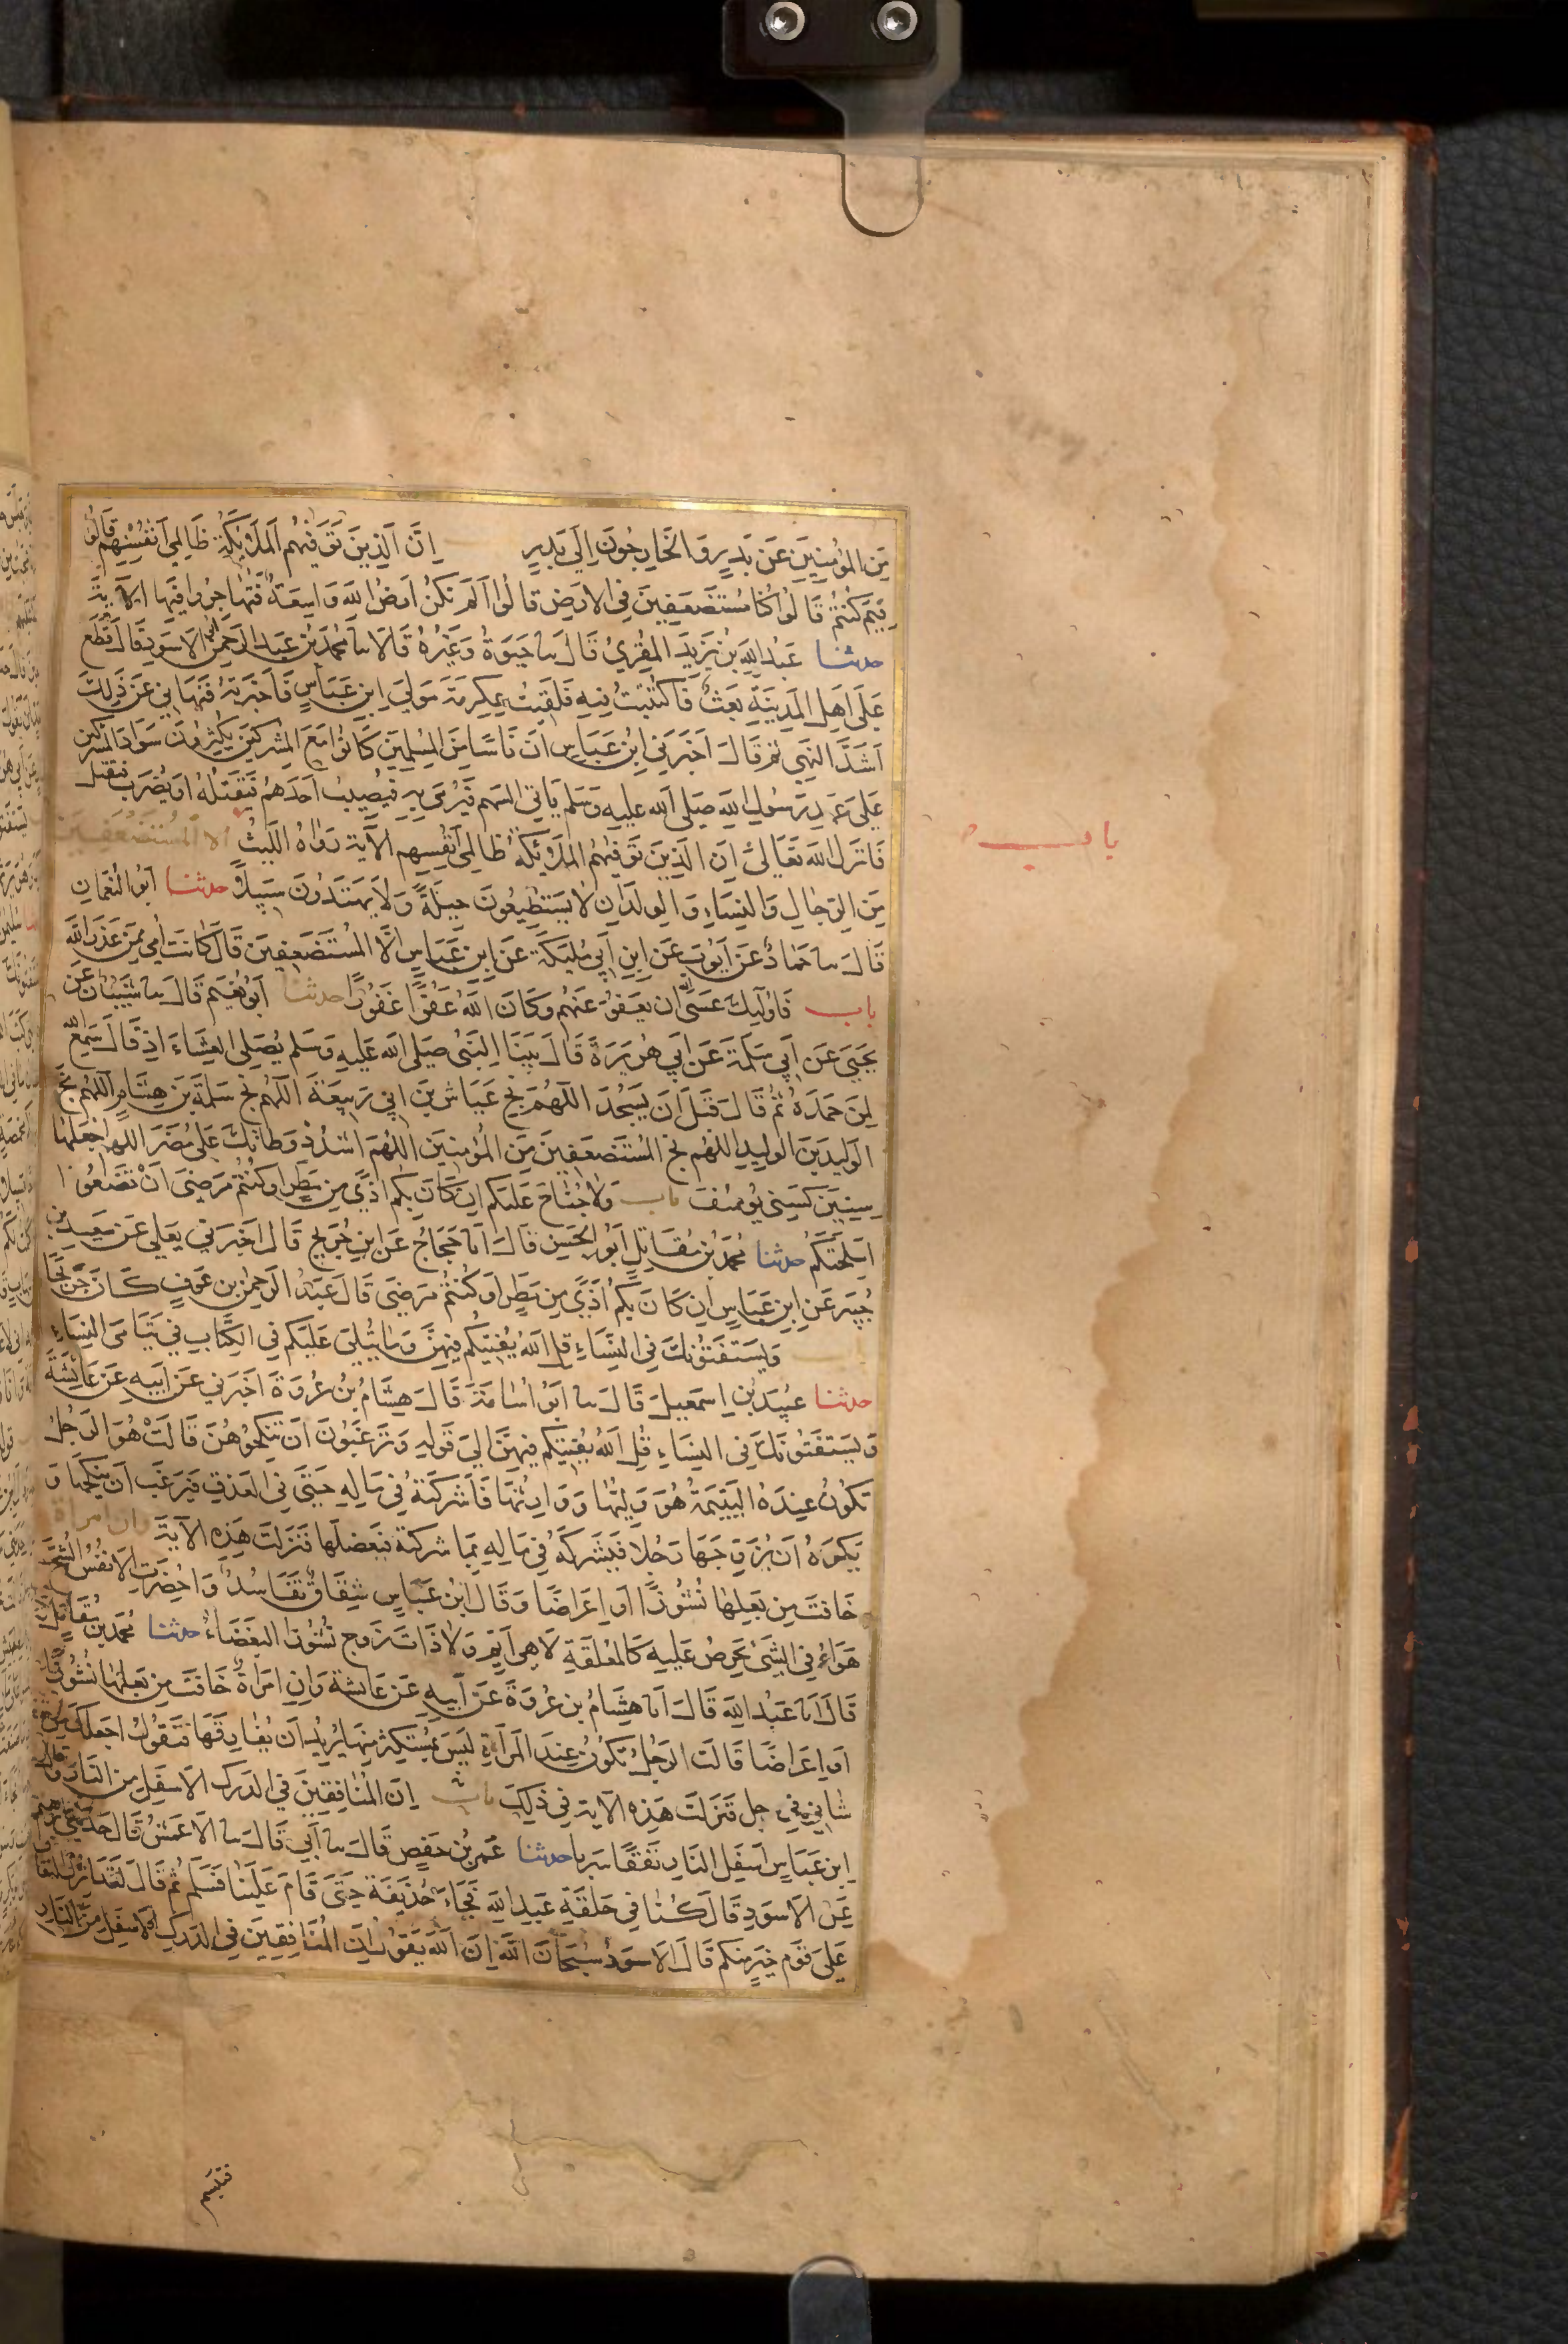 مِنَ المُؤمِنِينَ عَن بَدرٍ وَ الخَارِجُونَ اِلَى بَدرٍ اِنَّ الَّذِينَ تَوَفّيهُم المَلائِكَةُ ظَالِمِي اَنفُسِهِم قَالُوا
فِيمَ كُنتُم قَالُوا كُنّا مُستَضعَفِينَ فِي الارضِ قالُوا اَلَم تَكُن اَرضُ الله وَاسِعَةً فَتُهاجِرُوا فِيهَا الآيةَ
حدثنا عَبدُ اللهِ بنُ يَزِيدَ المقرِيُ قَالَ نا حَيوَةُ وَغَيرُهُ قَالَا نا مُحَمَّدُ بنُ عَبدِ الرَّحمنِ ابُو الاَسوَدِ قَالَ قُطِعَ
عَلَى اَهلِ المَدِينَةِ بَعثٌ فَاكتُتِبتُ فِيهِ فَلَقِيتُ عِكرِمَةَ مَولَى ابنِ عَبَّاسٍ فَاَخبَرتُهُ فَنَهَانِي عَن ذَلِكَ
اَشَدَّ النَّهيِ ثم قَالَ اَخبَرَنِي ابنُ عَبَّاسٍ اَنَّ نَاسًا مِنَ المُسلِمِينَ كَانُوا مَعَ المُشرِكِينَ يُكَثِّرُونَ سَوَادَ المُشرِكِين
عَلَى عَهدِ رَسُولِ اللهِ صَلى الله عليه وَسَلم يَاتِي السَّهم فَيُرمَى بِهِ فَيُصِيبُ اَحَدَهُم فَيَقتُلُهُ اَو يُضرَبُ فيقتل
فَانزَلَ الله تَعَالَى اِنَّ الَّذِينَ تَوَفّيهُمُ المَلائِكَةُ ظَالِمِي اَنفُسِهِم الآيَة رَوَاهُ اللَّيثُ الا المُستَضعَفِينَ
باب
مِنَ الرِّجَالِ وَالنِّسَاءِ وَ الوِلدَانِ لا يَستَطِيعُونَ حِيلَةً وَلا يَهتَدُونَ سَبِيلًا حدثنا اَبُو النُّعمَانِ
قَالَ نا حَمَّادٌ عَن اَيُّوبَ عَن ابنِ اَبِي مُلَيكَةَ عَن ابنِ عَبَّاسٍ اِلَّا المُستَضعَفِينَ قَالَ كَانَت اُمِّي مِمَّن عَذَرَ اللهُ
باب فَاُولَئِكَ عَسَى الله ان يَعفُوَ عَنهُم وَكَانَ اللهُ عَفُوًّا غَفُورًا حدثنا اَبُو نُعَيمٍ قَالَ نا شَيبَانُ عَن
يَحيَى عَن اَبِي سَلَمَةَ عَن اَبِي هُرَيرَةَ قَالَ بَينَا النَّبِيُّ صَلى الله عَلَيهِ وَسَلم يُصَلِّي العِشَاءَ اِذ قَالَ سَمِعَ اللهُ
لِمَن حَمِدَهُ ثُمَّ قَالَ قَبلَ اَن يَسجُدَ اللَّهُمَّ نَجِّ عَيَّاشَ بنَ ابِي رَبِيعَةَ اللَّهُم نَجِّ سَلَمَةَ بنَ هِشَامٍ اللَّهُم نَجِّ
الوَلِيدَ بنَ الوَلِيدِ اللهُم نَجِّ المُستَضعَفِينَ مِنَ المُؤمِنِينَ اللهُمَّ اشدُد وَطاتَكَ عَلى مُضَرَ اللَّهُم اجعَلهَا
سِنِينَ كَسِنِي يُوسُفَ باب وَلا جُنَاحَ عَلَيكُم اِن كَانَ بِكُم اَذًى مِن مَطَرٍ اَو كُنتُم مَرضَى اَن تَضَعُوا
اَسلِحَتَكُم حدثنا مُحَمَّدُ بنُ مُقَاتِلٍ اَبُو الحَسَنِ قَالَ انا حَجَّاجٌ عَن ابنِ جُرَيجٍ قَالَ اَخبَرَنِي يَعلَى عَن سَعِيدِ بن
جُبَيرٍ عَنِ ابنِ عَبَّاسٍ اِن كَانَ بِكُم اَذًى مِن مَطَرٍ اَو كُنتُم مَرضَى قَالَ عَبدُ الرَّحمنِ بن عَوفٍ كَانَ جَرِيحًا
باب وَيَستَفتُونَكَ فِي النِّسَاءِ قُل الله يُفتِيكُم فِيهِنَّ وَمَا يُتلَى عَلَيكُم فِي الكِتَابِ فِي يَتَامَى النِّسَاءِ
حدثنا عُبَيدُ بنُ اِسمَعِيلَ قَالَ نا اَبُو اُسَامَةَ قَالَ هِشَامُ بنُ عُروَةَ اَخبَرَنِي عَن اَبِيهِ عَن عَايِشَةَ
وَيَستَفتُونَكَ فِي النِّسَاءِ قُلِ اللهُ يُفتِيكُم فِيهِنَّ اِلَى قَولِهِ وَتَرغَبُونَ اَن تَنكِحُوهُنَّ قَالَت هُوَ الرَّجُلُ
تَكُونُ عِندَهُ اليَتِيمَةُ هُوَ وَلِيُّهَا وَ وَارِثُهَا فَاَشرَكَتهُ فِي مَالِهِ حَتَّى فِي العَذقِ فَيَرغَبُ اَن يَنكِحَهَا وَ
يَكرَهُ اَن يُزَوِّجَهَا رَجُلًا فَيَشرَكُهُ فِي مَالِهِ بِمَا شَرِكَتهُ فَيَعضِلُهَا فَنَزَلَت هَذِهِ الآيَة وَان امرَاة
خَافَت مِن بَعلِهَا نُشُوزًا اَو اِعرَاضًا وَقَالَ ابنُ عَبَّاسٍ شِقَاقٌ تَفَاسُدٌ وَاُحضِرَتِ الاَنفُسُ الشُّحَّ
هَوَاهُ فِي الشَّيءِ يَحرِصُ عَلَيهِ كَالمُعَلَّقَةِ لَا هِيَ اَيِّمٌ وَلا ذَاتُ زَوجٍ نُشُوزًا البُغضَاءُ حدثنا مُحَمَّدُ بنُ مُقَاتِلٍ
قَالَ انا عَبدُ اللهِ قَالَ انا هِشَامُ بن عُروَةَ عَن اَبِيهِ عَن عَائشة وَاِنِ امرَاةٌ خَافَت مِن بَعلِهَا نُشُوزًا
اَو اِعرَاضًا قَالَت الرَّجُلُ تَكُونُ عِندَهُ المَراَةُ لَيسَ بِمُستَكثِرٍ مِنهَا يُرِيدُ اَن يُفَارِقَهَا فَتَقُولُ اَجعَلُكَ مِن
شَانِي فِي حِلٍّ فَنَزَلَت هَذِهِ الآيَة فِي ذَلِكَ باب اِنَّ المُنَافِقِينَ فِي الدَّرَكِ الاَسفَلِ مِنَ النَّارِ وَقَالَ
ابن عَبَّاسٍ اَسفَلَ النَّارِ نَفَقًا سَرَبًا حدثنا عُمَرُ بنُ حَفصٍ قَالَ نا اَبِي قَالَ نا الاَعمَشُ قَالَ حَدَّثَنِي اِبرَاهِيم
عَنِ الاَسوَدِ قَالَ كُنَّا فِي حَلقَةِ عَبدِ اللهِ فَجَاءَ حُذَيفَةُ حَتَّى قَامَ عَلَينَا فَسَلَّمَ ثُم قَالَ لَقَد اُنزِلَ النِّفَاقُ
عَلَى قَومٍ خَيرٍ مِنكُم قَالَ الاَسوَدُ سُبحَانَ اللهِ اِنَّ اللهَ يَقُولُ اِنَّ المُنَافِقِينَ فِي الدَّرَكِ الاَسفَلِ مِنَ النَّارِ
فَتَبَسَّم